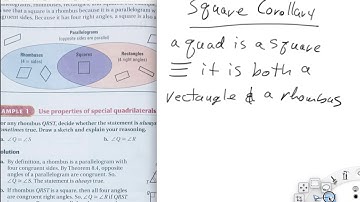 see that a square is a rhombus because it is a parallelogram
because it has four right angles, a square is also
Parallelograms
(opposite sides are parallel)
Rhombuses
(4 ≅ sides)
Squares
Rectangles
(4 right angles)
AMPLE 1 Use properties of special quadrilaterals
or any rhombus QRST, decide whether the statement is always or
sometimes true. Draw a sketch and explain your reasoning.
a. ∠Q ≅ ∠S
b. ∠Q ≅ ∠R
olution
a. By definition, a rhombus is a parallelogram with
four congruent sides. By Theorem 8.4, opposite
angles of a parallelogram are congruent. So,
∠Q ≅ ∠S. The statement is always true.
b. If rhombus QRST is a square, then all four angles
are congruent right angles. So, ∠Q ≅ ∠R if QRST
Square Corollary
a quad is a square
≡ it is both a
rectangle & a rhombus